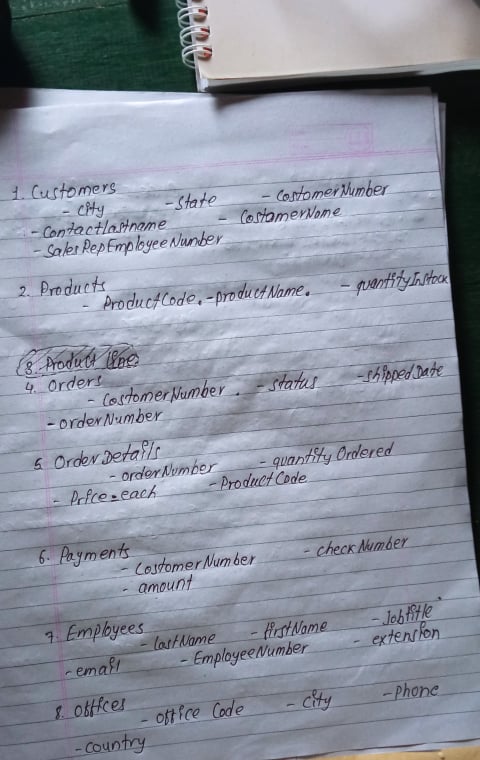 1. Customers
- City - State - CostomerNumber
- Contactlastname - CostamerName
- Sales RepEmployeeNumber
2. Products
- ProductCode. - productName. - quantityInStock
3. Product line
4. Orders
- CostomerNumber. - Status - shippedDate
- orderNumber
5. Order Details
- orderNumber - quantity Ordered
- Price = each - ProductCode
6. Payments
- CostomerNumber - checkNumber
- amount
7. Employees
- lastName - firstName - Jobtitle
- email - EmployeeNumber - extension
8. Offices
- office Code - City - Phone
- country